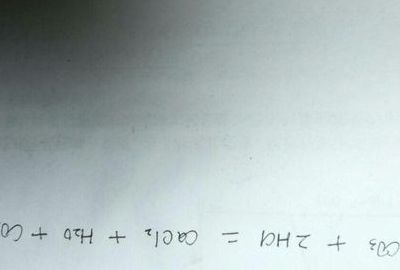 CO₃ + 2HCl = CaCl₂ + H₂O + CO